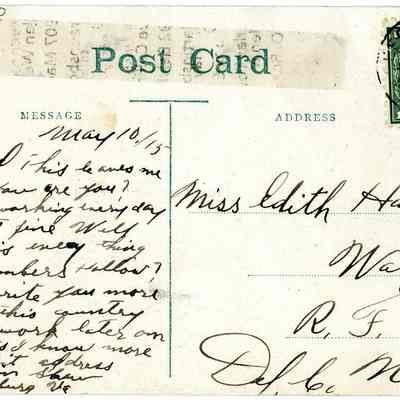 Post Card
MESSAGE
ADDRESS
May 10/15
This leaves me
you are you?
working every day
fine Well
every thing
Hollow?
write you more
this country
work later on
I know more
address
Shaw
burg Va
Miss Edith Ha
Wa
R. F.
Del. C.